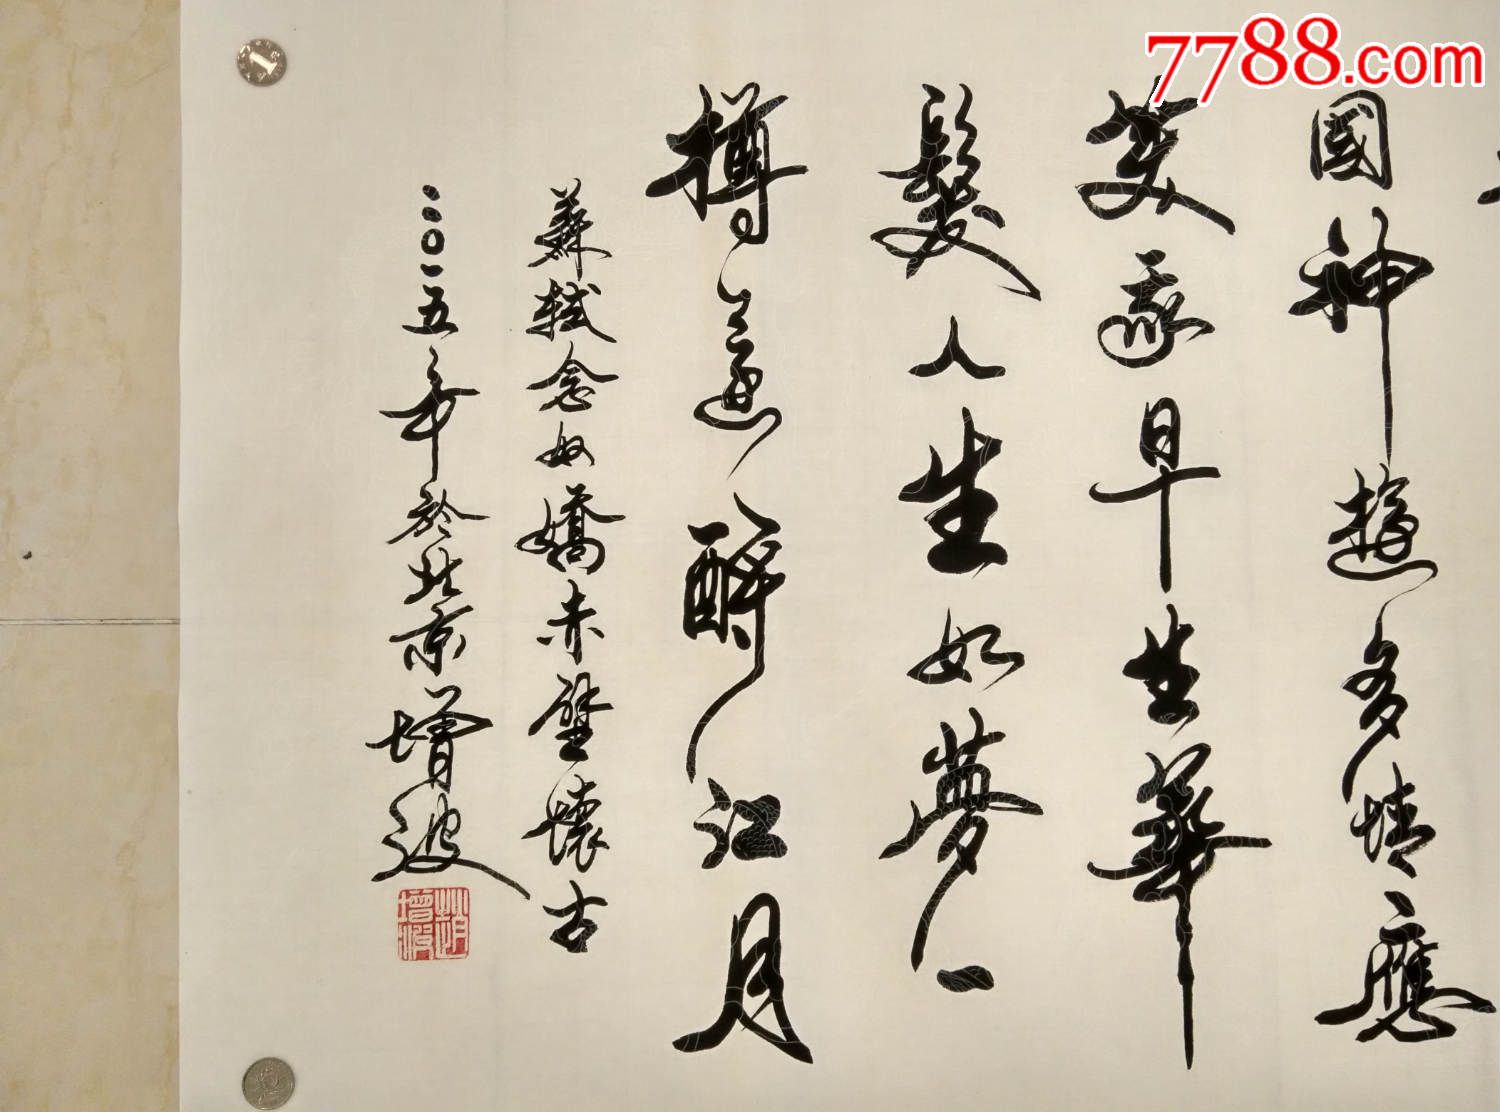 7788.com
國神遊多情應
笑我早生華
髮人生如夢一
樽還酹江月
蘇軾念奴嬌赤壁懷古
二〇一五年於北京增波
趙增波